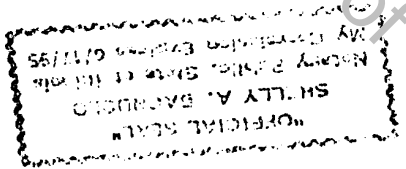 "OFFICIAL SEAL"
SHELLY A.
Notary Public, State of Illinois
My Commission Expires 6/17/95